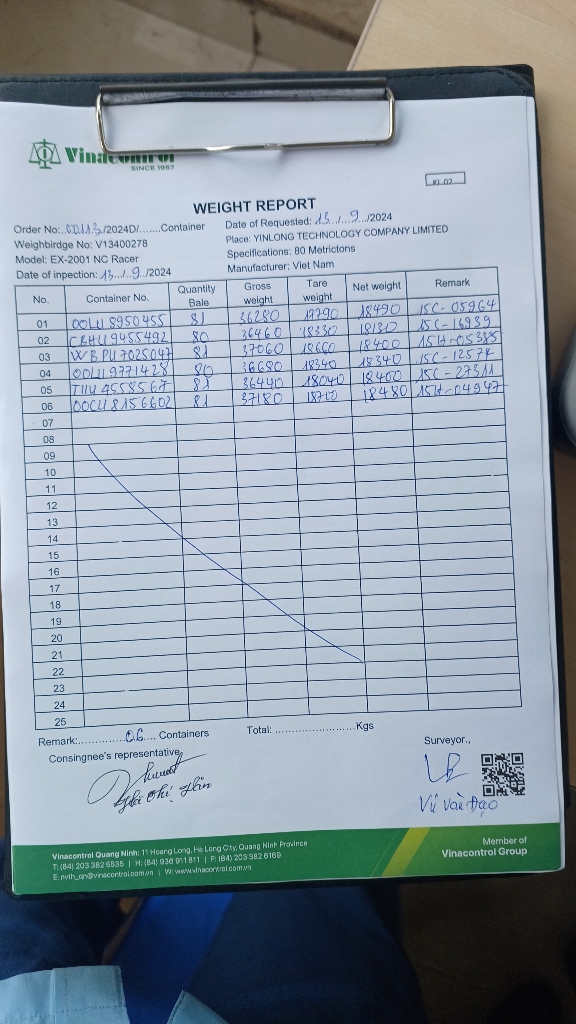 Vinacontrol
SINCE 1957
KL 02
WEIGHT REPORT
Order No:..00113/2024D/.......Container
Date of Requested: 13.../...9.../2024
Weighbirdge No: V13400278
Place: YINLONG TECHNOLOGY COMPANY LIMITED
Model: EX-2001 NC Racer
Specifications: 80 Metrictons
Date of inpection: 13.../...9./2024
Manufacturer: Viet Nam
No. Container No. Quantity Bale Gross weight Tare weight Net weight Remark
01 OOLU 8950455 81 36280 17790 18490 15C-05964
02 CBHU 9455492 80 36460 18330 18130 15C-16939
03 WBPU 7025047 81 37060 18660 18400 15H-05385
04 OOLU 9771428 80 36680 18340 18340 15C-12574
05 TIIU 4558567 81 36440 18040 18400 15C-27311
06 OOCU 8156602 81 37180 18700 18480 15H-04947
07
08
09
10
11
12
13
14
15
16
17
18
19
20
21
22
23
24
25
Remark:..............06.... Containers
Total: ........................Kgs
Consingnee's representative,
Surveyor.,
Vũ Văn Đạo
Vinacontrol Quang Ninh: 11 Hoang Long, Ha Long City, Quang Ninh Province
T: (84) 203 382 5535 | H: (84) 936 911 811 | F: (84) 203 382 6169
E: nvth_qn@vinacontrol.com.vn | W: www.vinacontrol.com.vn
Member of
Vinacontrol Group